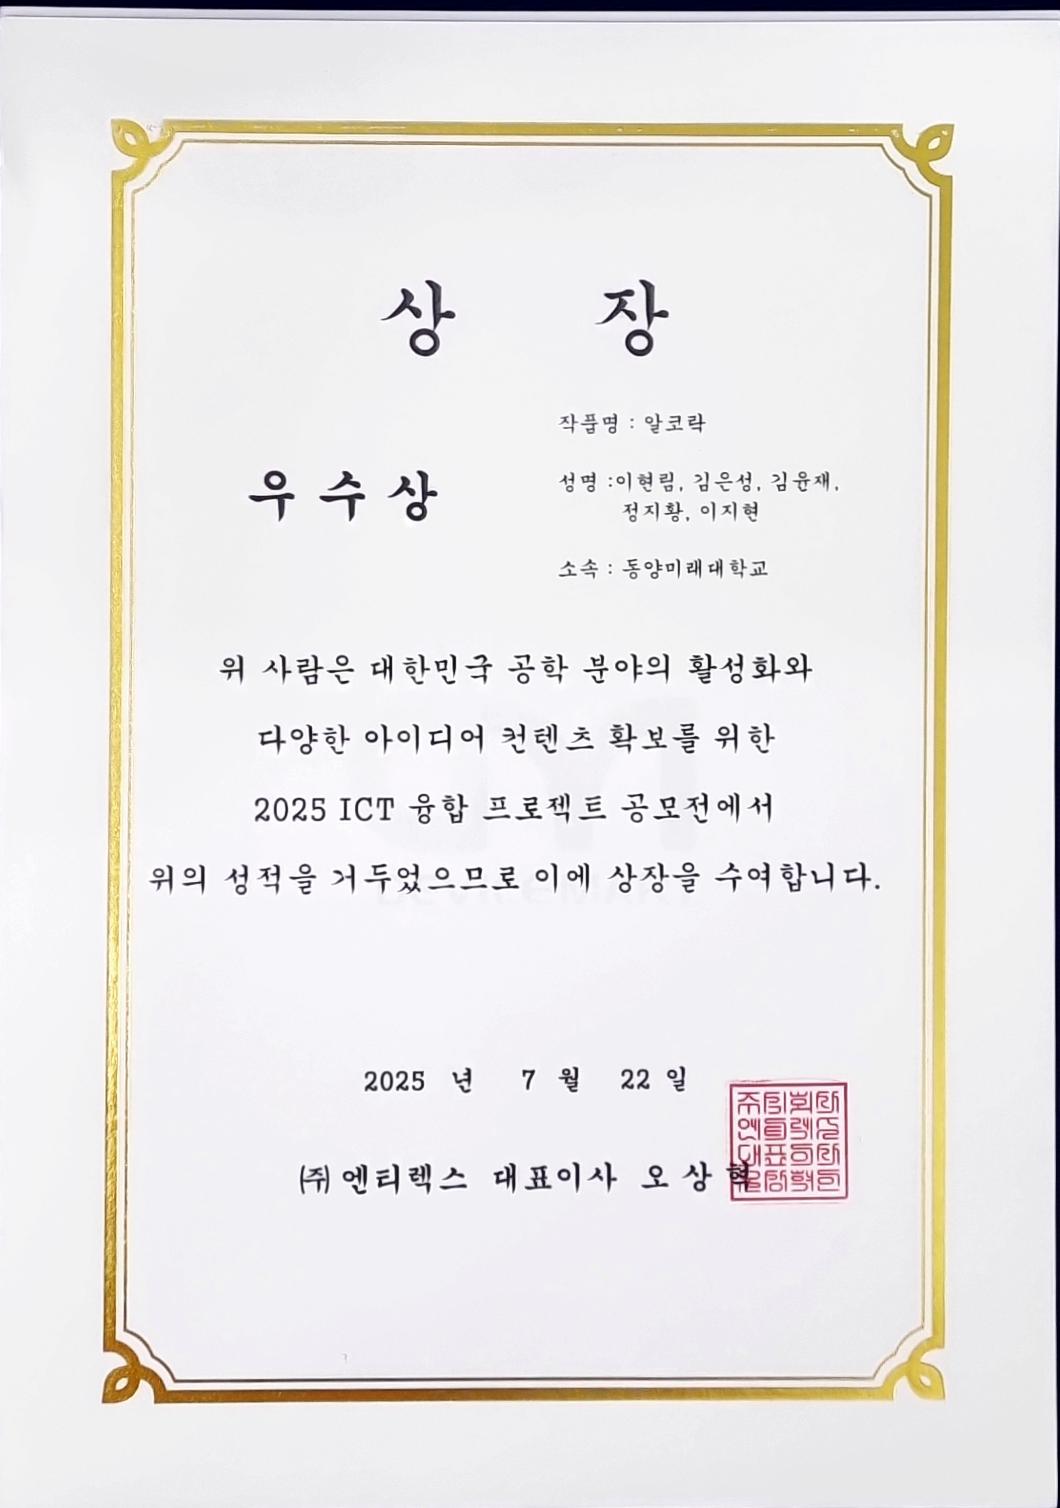 상 장
작품명 : 알코락
우수상
성명 :이현림, 김은성, 김윤재,
정지황, 이지현
소속 : 동양미래대학교
위 사람은 대한민국 공학 분야의 활성화와
다양한 아이디어 컨텐츠 확보를 위한
2025 ICT 융합 프로젝트 공모전에서
위의 성적을 거두었으므로 이에 상장을 수여합니다.
DEVICEMART
2025 년 7 월 22 일
㈜엔티렉스 대표이사 오상혁